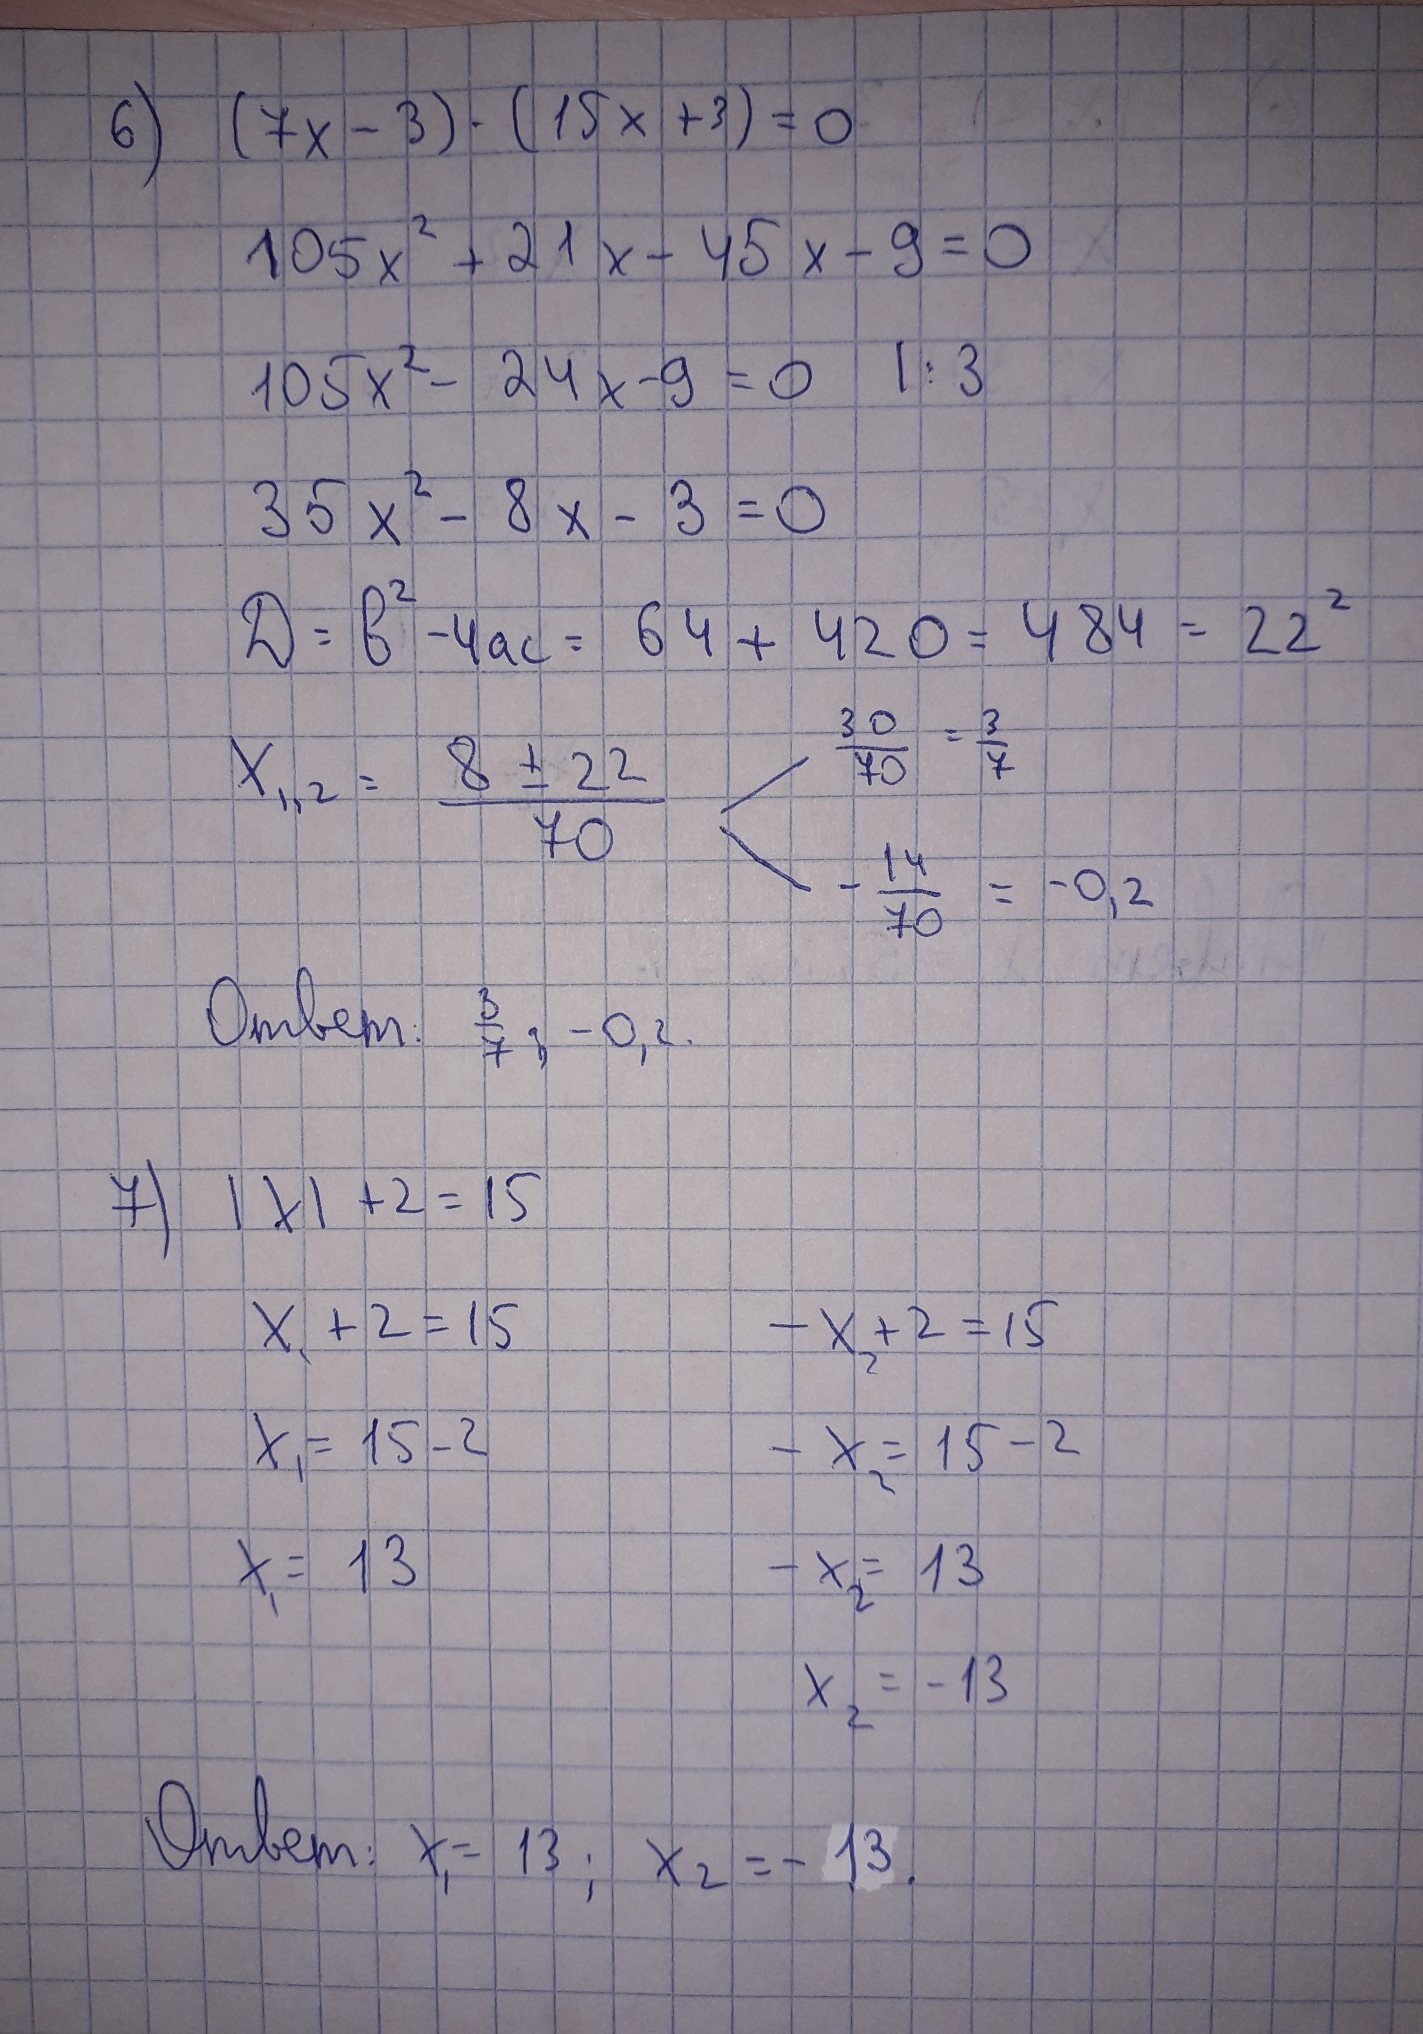 6) (7x - 3) · (15x + 3) = 0
105x² + 21x - 45x - 9 = 0
105x² - 24x - 9 = 0 |:3
35x² - 8x - 3 = 0
D = b² - 4ac = 64 + 420 = 484 = 22²
x₁,₂ = (8 ± 22)/70
30/70 = 3/7
-14/70 = -0,2
Ответ: 3/7; -0,2.
7) |x| + 2 = 15
x₁ + 2 = 15 -x₂ + 2 = 15
x₁ = 15 - 2 -x₂ = 15 - 2
x₁ = 13 -x₂ = 13
x₂ = -13
Ответ: x₁ = 13; x₂ = -13.